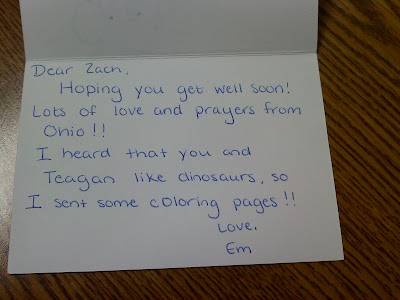 Dear Zach,
Hoping you get well soon!
Lots of love and prayers from
Ohio!!
I heard that you and
Teagan like dinosaurs, so
I sent some coloring pages!!
Love,
Em